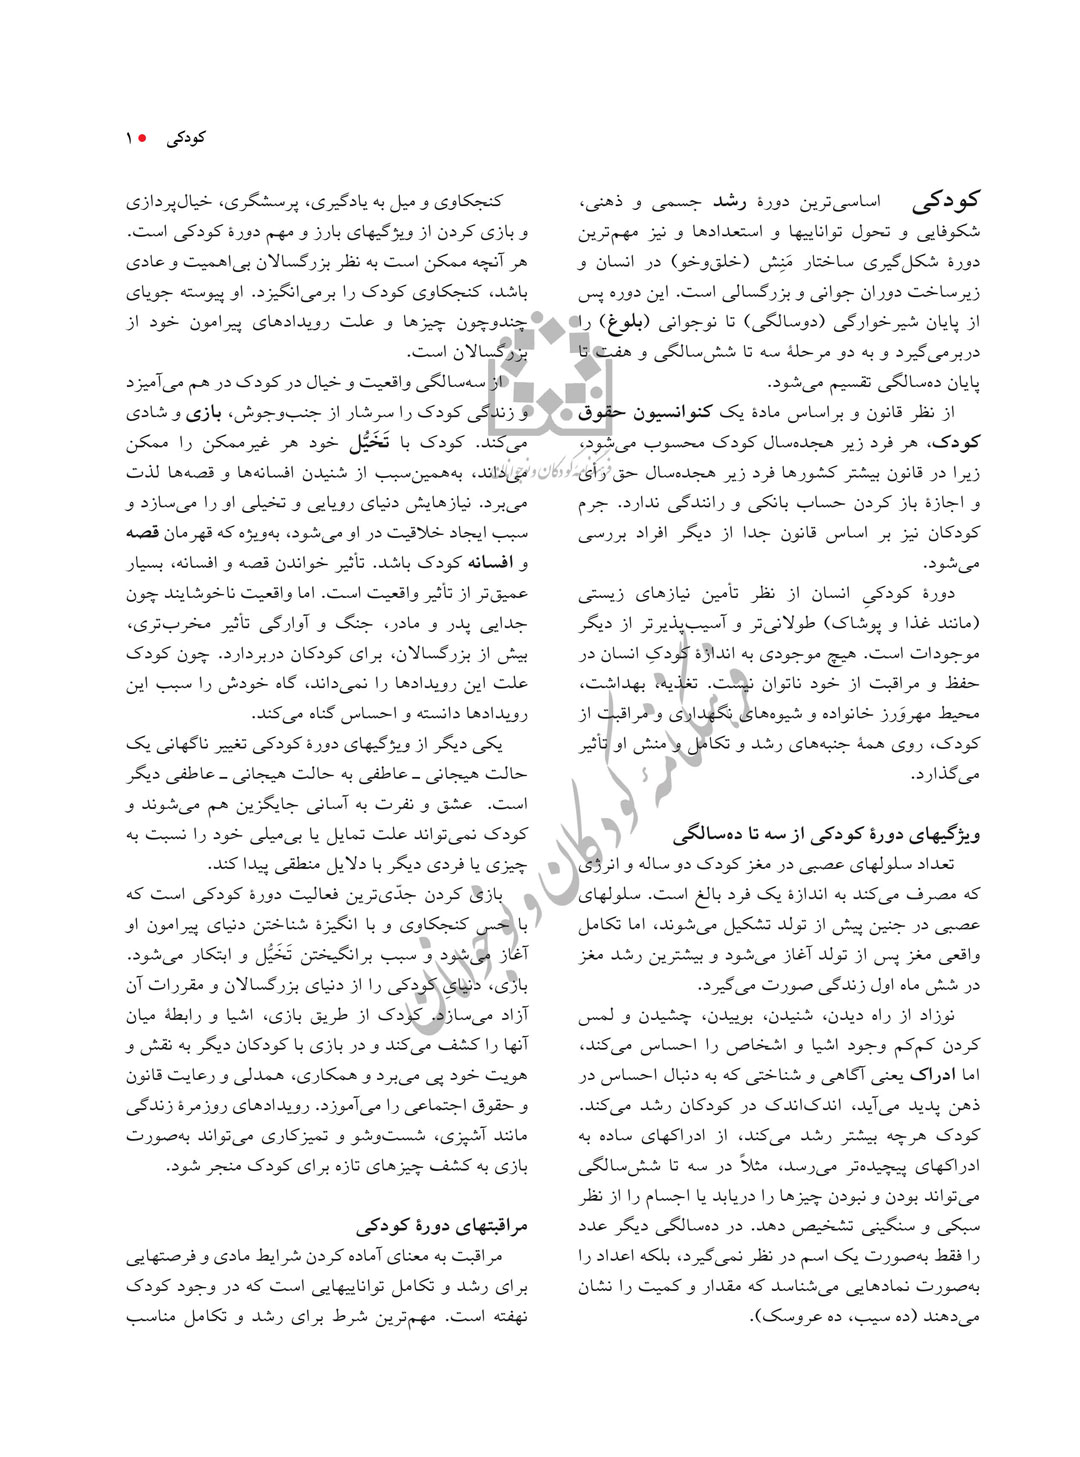 کودکی ● ۱
کودکی اساسی‌ترین دورهٔ رشد جسمی و ذهنی،
شکوفایی و تحول تواناییها و استعدادها و نیز مهم‌ترین
دورهٔ شکل‌گیری ساختار مَنِش (خلق‌وخو) در انسان و
زیرساخت دوران جوانی و بزرگسالی است. این دوره پس
از پایان شیرخوارگی (دوسالگی) تا نوجوانی (بلوغ) را
دربرمی‌گیرد و به دو مرحلهٔ سه تا شش‌سالگی و هفت تا
پایان ده‌سالگی تقسیم می‌شود.
از نظر قانون و براساس مادهٔ یک کنوانسیون حقوق
کودک، هر فرد زیر هجده‌سال کودک محسوب می‌شود،
زیرا در قانون بیشتر کشورها فرد زیر هجده‌سال حق رأی
و اجازهٔ باز کردن حساب بانکی و رانندگی ندارد. جرم
کودکان نیز بر اساس قانون جدا از دیگر افراد بررسی
می‌شود.
دورهٔ کودکیِ انسان از نظر تأمین نیازهای زیستی
(مانند غذا و پوشاک) طولانی‌تر و آسیب‌پذیرتر از دیگر
موجودات است. هیچ موجودی به اندازهٔ کودکِ انسان در
حفظ و مراقبت از خود ناتوان نیست. تغذیه، بهداشت،
محیط مهروَرز خانواده و شیوه‌های نگهداری و مراقبت از
کودک، روی همهٔ جنبه‌های رشد و تکامل و منش او تأثیر
می‌گذارد.
ویژگیهای دورهٔ کودکی از سه تا ده‌سالگی
تعداد سلولهای عصبی در مغز کودک دو ساله و انرژی
که مصرف می‌کند به اندازهٔ یک فرد بالغ است. سلولهای
عصبی در جنین پیش از تولد تشکیل می‌شوند، اما تکامل
واقعی مغز پس از تولد آغاز می‌شود و بیشترین رشد مغز
در شش ماه اول زندگی صورت می‌گیرد.
نوزاد از راه دیدن، شنیدن، بوییدن، چشیدن و لمس
کردن کم‌کم وجود اشیا و اشخاص را احساس می‌کند،
اما ادراک یعنی آگاهی و شناختی که به دنبال احساس در
ذهن پدید می‌آید، اندک‌اندک در کودکان رشد می‌کند.
کودک هرچه بیشتر رشد می‌کند، از ادراکهای ساده به
ادراکهای پیچیده‌تر می‌رسد، مثلاً در سه تا شش‌سالگی
می‌تواند بودن و نبودن چیزها را دریابد یا اجسام را از نظر
سبکی و سنگینی تشخیص دهد. در ده‌سالگی دیگر عدد
را فقط به‌صورت یک اسم در نظر نمی‌گیرد، بلکه اعداد را
به‌صورت نمادهایی می‌شناسد که مقدار و کمیت را نشان
می‌دهند (ده سیب، ده عروسک).
کنجکاوی و میل به یادگیری، پرسشگری، خیال‌پردازی
و بازی کردن از ویژگیهای بارز و مهم دورهٔ کودکی است.
هر آنچه ممکن است به نظر بزرگسالان بی‌اهمیت و عادی
باشد، کنجکاوی کودک را برمی‌انگیزد. او پیوسته جویای
چندوچون چیزها و علت رویدادهای پیرامون خود از
بزرگسالان است.
از سه‌سالگی واقعیت و خیال در کودک در هم می‌آمیزد
و زندگی کودک را سرشار از جنب‌وجوش، بازی و شادی
می‌کند. کودک با تَخَیُّل خود هر غیرممکن را ممکن
می‌داند، به‌همین‌سبب از شنیدن افسانه‌ها و قصه‌ها لذت
می‌برد. نیازهایش دنیای رویایی و تخیلی او را می‌سازد و
سبب ایجاد خلاقیت در او می‌شود، به‌ویژه که قهرمان قصه
و افسانه کودک باشد. تأثیر خواندن قصه و افسانه، بسیار
عمیق‌تر از تأثیر واقعیت است. اما واقعیت ناخوشایند چون
جدایی پدر و مادر، جنگ و آوارگی تأثیر مخرب‌تری،
بیش از بزرگسالان، برای کودکان دربردارد. چون کودک
علت این رویدادها را نمی‌داند، گاه خودش را سبب این
رویدادها دانسته و احساس گناه می‌کند.
یکی دیگر از ویژگیهای دورهٔ کودکی تغییر ناگهانی یک
حالت هیجانی ـ عاطفی به حالت هیجانی ـ عاطفی دیگر
است. عشق و نفرت به آسانی جایگزین هم می‌شوند و
کودک نمی‌تواند علت تمایل یا بی‌میلی خود را نسبت به
چیزی یا فردی دیگر با دلایل منطقی پیدا کند.
بازی کردن جدّی‌ترین فعالیت دورهٔ کودکی است که
با حس کنجکاوی و با انگیزهٔ شناختن دنیای پیرامون او
آغاز می‌شود و سبب برانگیختن تَخَیُّل و ابتکار می‌شود.
بازی، دنیایِ کودکی را از دنیای بزرگسالان و مقررات آن
آزاد می‌سازد. کودک از طریق بازی، اشیا و رابطهٔ میان
آنها را کشف می‌کند و در بازی با کودکان دیگر به نقش و
هویت خود پی می‌برد و همکاری، همدلی و رعایت قانون
و حقوق اجتماعی را می‌آموزد. رویدادهای روزمرهٔ زندگی
مانند آشپزی، شست‌وشو و تمیزکاری می‌تواند به‌صورت
بازی به کشف چیزهای تازه برای کودک منجر شود.
مراقبتهای دورهٔ کودکی
مراقبت به معنای آماده کردن شرایط مادی و فرصتهایی
برای رشد و تکامل تواناییهایی است که در وجود کودک
نهفته است. مهم‌ترین شرط برای رشد و تکامل مناسب
فرهنگنامهٔ کودکان و نوجوانان
فرهنگنامهٔ کودکان و نوجوانان